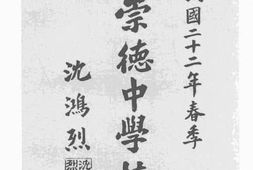 國二十二年春季
崇德中學
沈鴻烈